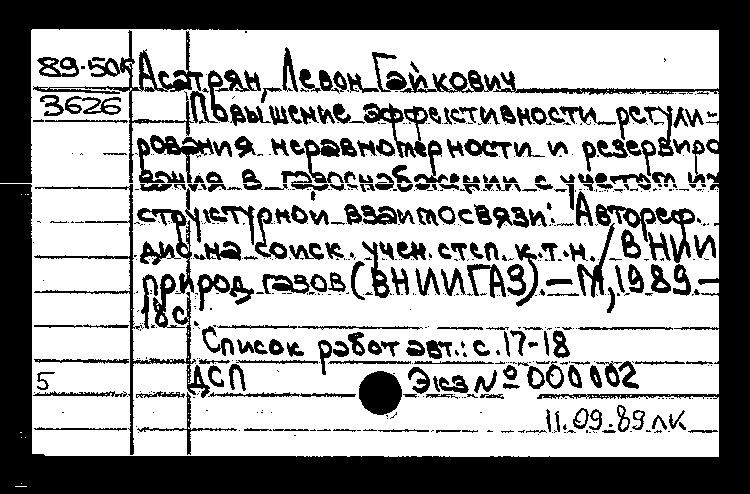 89-50к Асатрян, Левон Гайкович
3626 Повышение эффективности регули-
рования неравномерности и резервиро
вания в газоснабжении с учетом их
структурной взаимосвязи: Автореф.
дис. на соиск. учен. степ. к.т.н. / ВНИИ
природ. газов (ВНИИГАЗ). — М, 1989. —
18с.
Список работ авт.: с. 17-18
5 ДСП Экз № 000002
11.09.89 лк